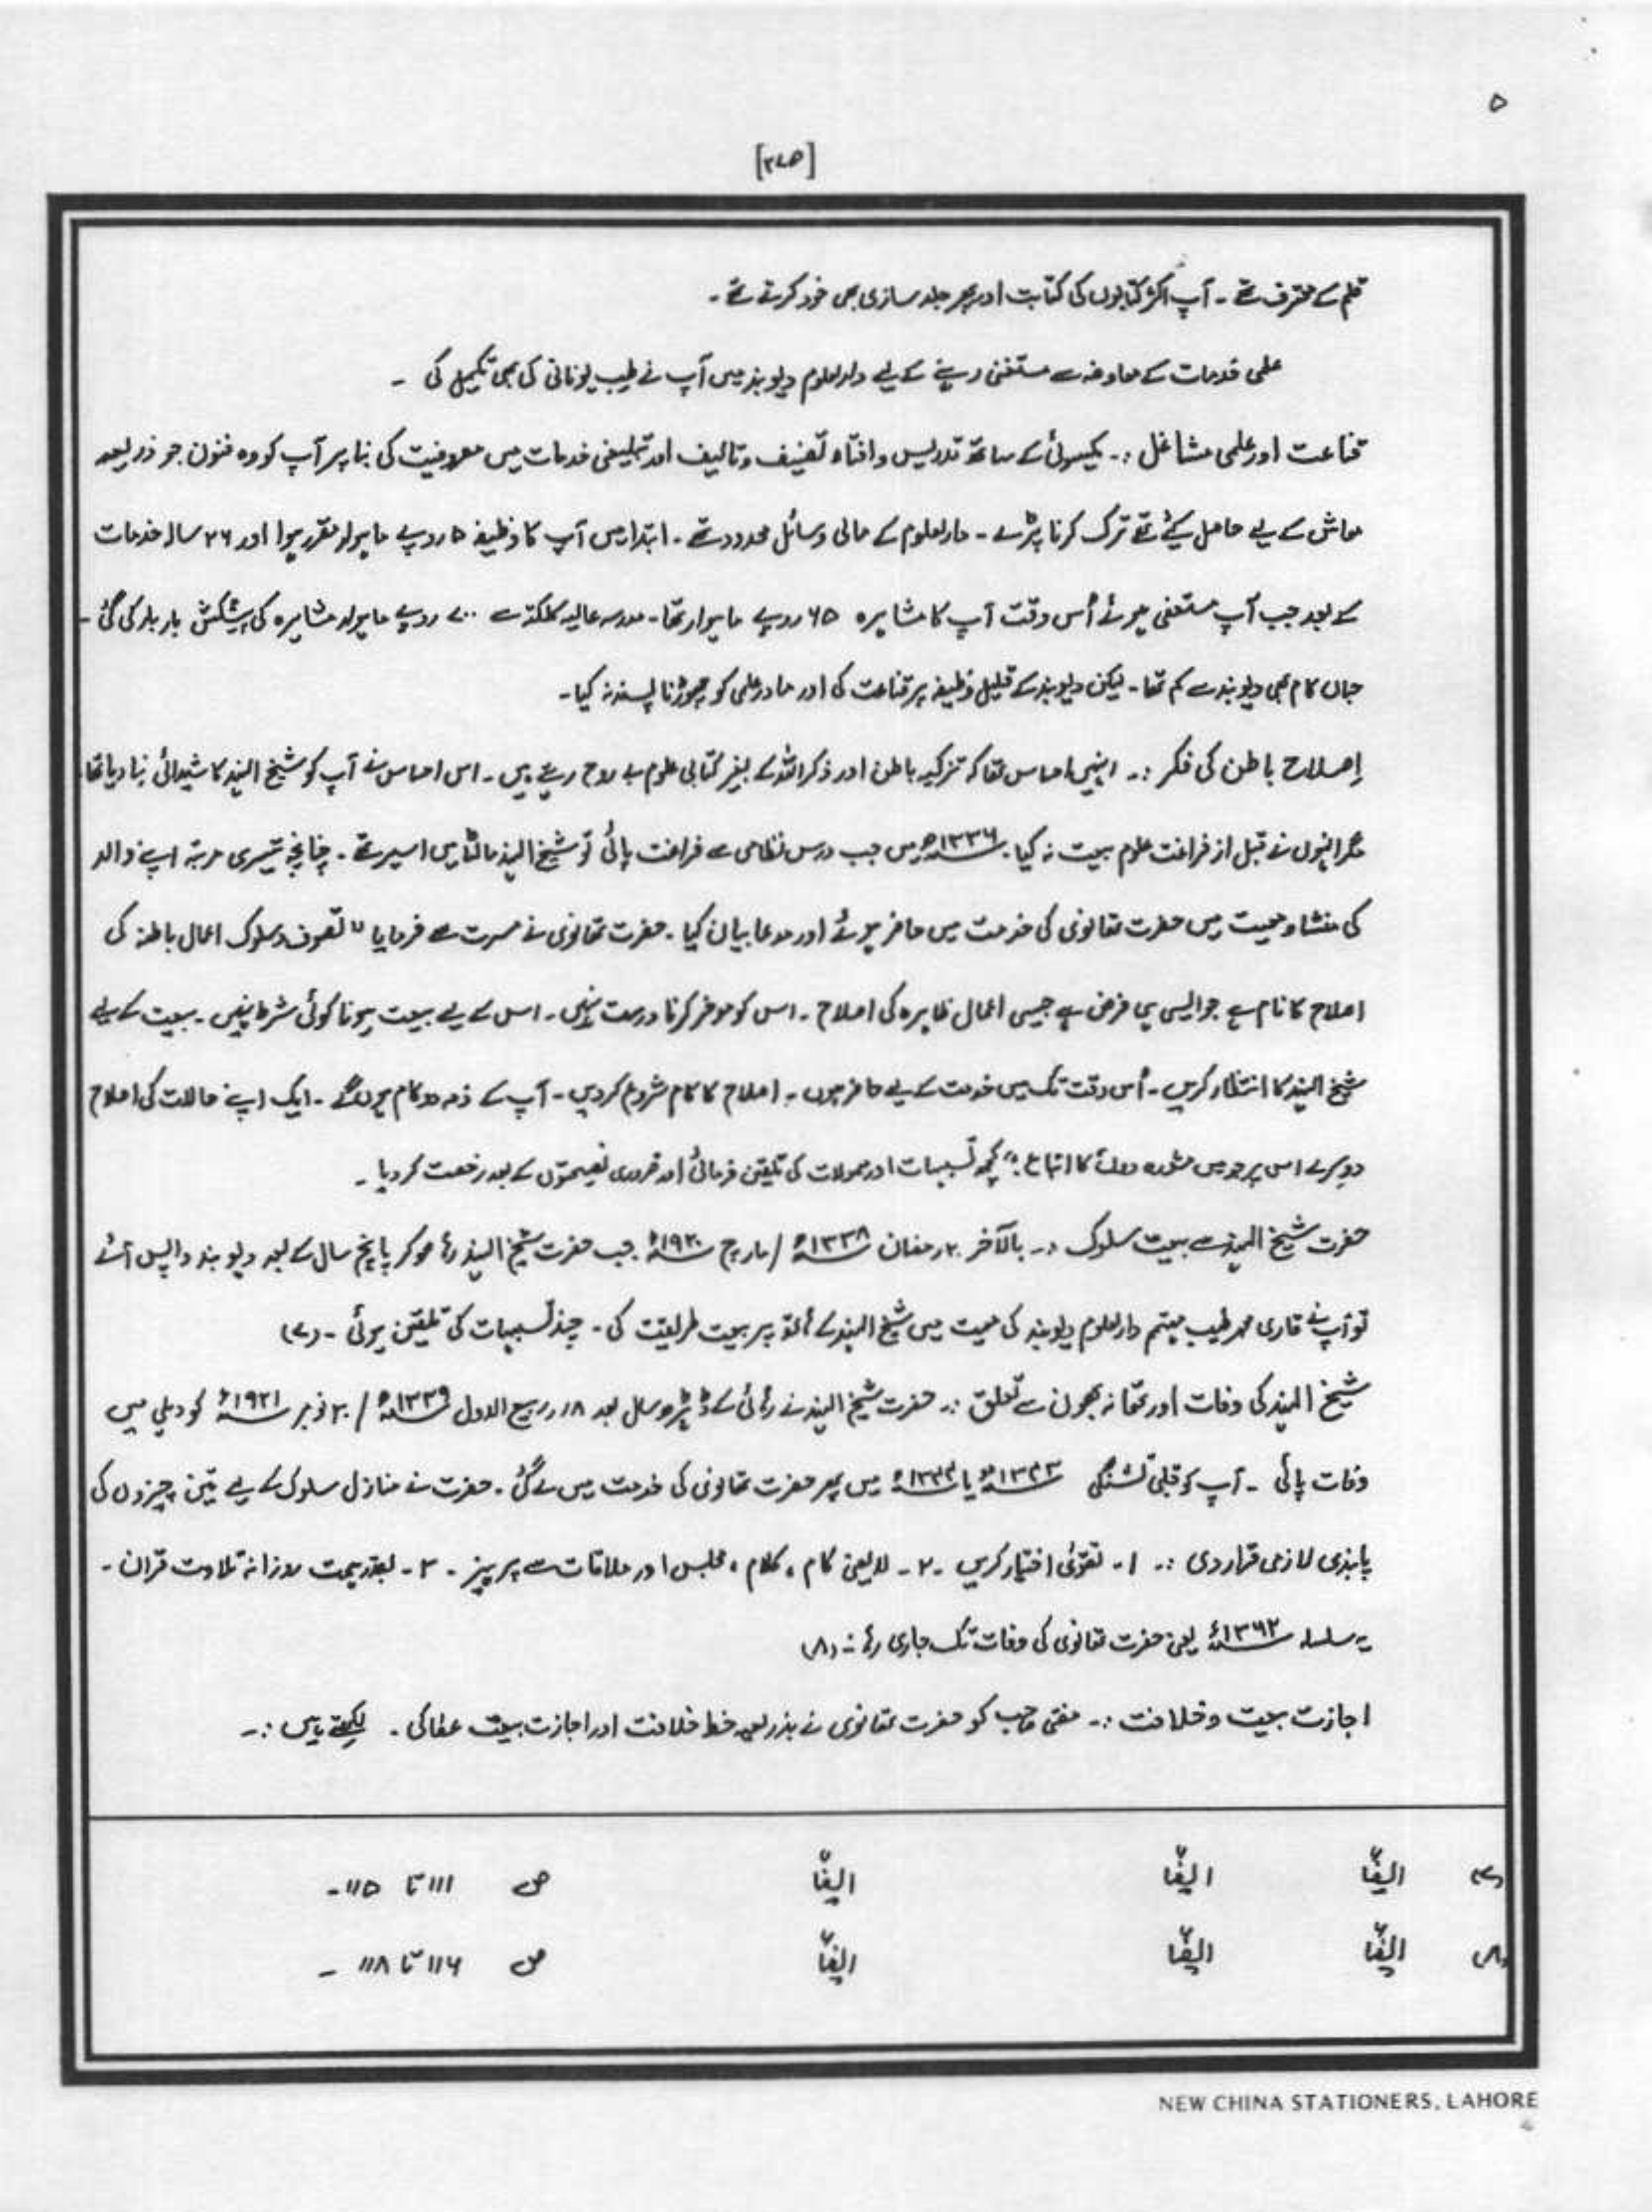 ۵
[۲۷۵]
قلم کے معترف تھے ۔ آپ اکثر کتابوں کی کتابت اور پھر جلد سازی بھی خود کرتے تھے ۔
علمی خدمات کے معاوضہ سے مستغنی رہنے کے لیے دارالعلوم دیوبند میں آپ نے طب یونانی کی بھی تکمیل کی ۔
قناعت اور علمی مشاغل :۔ یکسوئی کے ساتھ تدریس و افتاء تصنیف و تالیف اور تبلیغی خدمات میں مصروفیت کی بنا پر آپ کو وہ فنون جو ذریعہ
معاش کے لیے حاصل کیئے تھے ترک کرنا پڑے ۔ دارالعلوم کے مالی وسائل محدود تھے ۔ ابتدا میں آپ کا وظیفہ ۵ روپے ماہوار مقرر ہوا اور ۲۶ سالہ خدمات
کے بعد جب آپ مستعفی ہوئے اُس وقت آپ کا مشاہرہ ۶۵ روپے ماہوار تھا ۔ مدرسہ عالیہ کلکتہ سے ۷۰۰ روپے ماہوار مشاہرہ کی پیشکش بار بار کی گئی ۔
جہاں کام بھی دیوبند سے کم تھا ۔ لیکن دیوبند کے قلیل وظیفہ پر قناعت کی اور مادر علمی کو چھوڑنا پسند نہ کیا ۔
اِصلاح باطن کی فکر :۔ انہیں احساس تھا کہ تزکیہ باطن اور ذکر اللہ کے بغیر کتابی علوم بے روح رہتے ہیں ۔ اس احساس نے آپ کو شیخ الہند کا شیدائی بنا دیا تھا
مگر انہوں نے قبل از فراغت علوم بیعت نہ کیا ۔ ۱۳۳۶ھ میں جب درس نظامی سے فراغت پائی تو شیخ الہند مالٹا میں اسیر تھے ۔ چنانچہ تیسری مرتبہ اپنے والد
کی منشا و معیت میں حضرت تھانوی کی خدمت میں حاضر ہوئے اور مدعا بیان کیا ۔ حضرت تھانوی نے مسرت سے فرمایا " تصوف و سلوک اعمال باطنہ کی
اصلاح کا نام ہے جو ایسی ہی فرض ہے جیسی اعمال ظاہرہ کی اصلاح ۔ اس کو موخر کرنا درست نہیں ۔ اس کے لیے بیعت ہونا کوئی شرط نہیں ۔ بیعت کے لیے
شیخ الہند کا انتظار کریں ۔ اُس وقت تک میں خدمت کے لیے حاضر ہوں ۔ اصلاح کا کام شروع کر دیں ۔ آپ کے ذمہ دو کام ہوں گے ۔ ایک اپنے حالات کی اصلاح
دوسرے اس پر جو میں مشورہ دوں اُس کا اتباع ۔" کچھ تسبیحات اور معمولات کی تلقین فرمائی اور ضروری نصیحتوں کے بعد رخصت کر دیا ۔
حضرت شیخ الہند سے بیعت سلوک :۔ بالآخر ۲۰ رمضان ۱۳۳۸ھ / مارچ ۱۹۲۰ء جب حضرت شیخ الہند رہا ہو کر پانچ سال کے بعد دیوبند واپس آئے
تو آپ نے قاری محمد طیب مہتمم دارالعلوم دیوبند کی معیت میں شیخ الہند کے ہاتھ پر بیعت طریقت کی ۔ چند تسبیحات کی تلقین ہوئی ۔ (۷)
شیخ الہند کی وفات اور تھانہ بھون سے تعلق :۔ حضرت شیخ الہند نے رہائی کے ڈیڑھ سال بعد ۱۸ ربیع الاول ۱۳۳۹ھ / ۳۰ نومبر ۱۹۲۱ء کو دہلی میں
وفات پائی ۔ آپ کو قلبی تشنگی ۱۳۴۳ھ یا ۱۳۴۴ھ میں پھر حضرت تھانوی کی خدمت میں لے گئی ۔ حضرت نے منازل سلوک کے لیے تین چیزوں کی
پابندی لازمی قرار دی :۔ ۱۔ تقویٰ اختیار کریں ۔ ۲۔ لایعنی کام ، کلام ، مجلس اور ملاقات سے پرہیز ۔ ۳۔ بقدر ہمت روزانہ تلاوت قران ۔
یہ سلسلہ ۱۳۶۲ھ یعنی حضرت تھانوی کی وفات تک جاری رہا :۔ (۸)
اجازت بیعت و خلافت :۔ مفتی صاحب کو حضرت تھانوی نے بذریعہ خط خلافت اور اجازت بیعت عطا کی ۔ لکھتے ہیں :۔
(۷) ایضاً ایضاً ایضاً ص ۱۱۱ تا ۱۱۵ ۔
(۸) ایضاً ایضاً ایضاً ص ۱۱۶ تا ۱۱۸ ۔
NEW CHINA STATIONERS, LAHORE